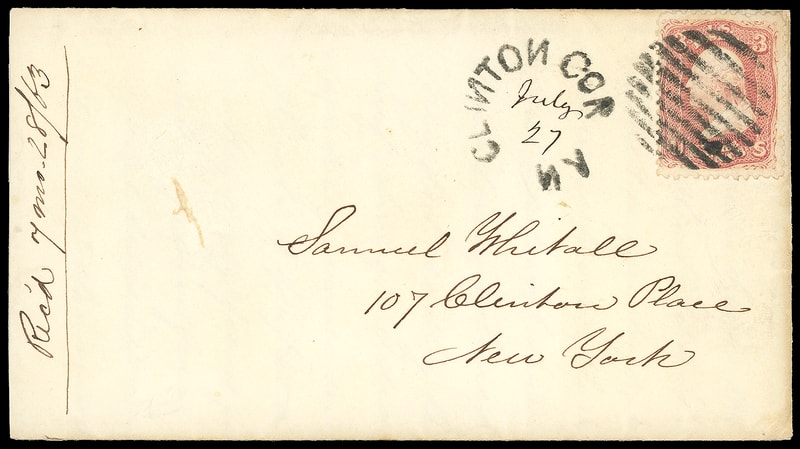 Rec'd 7 mo. 28/63
CLINTON COR
NY
July
27
3
U S
Samuel Whitall
107 Clinton Place
New York